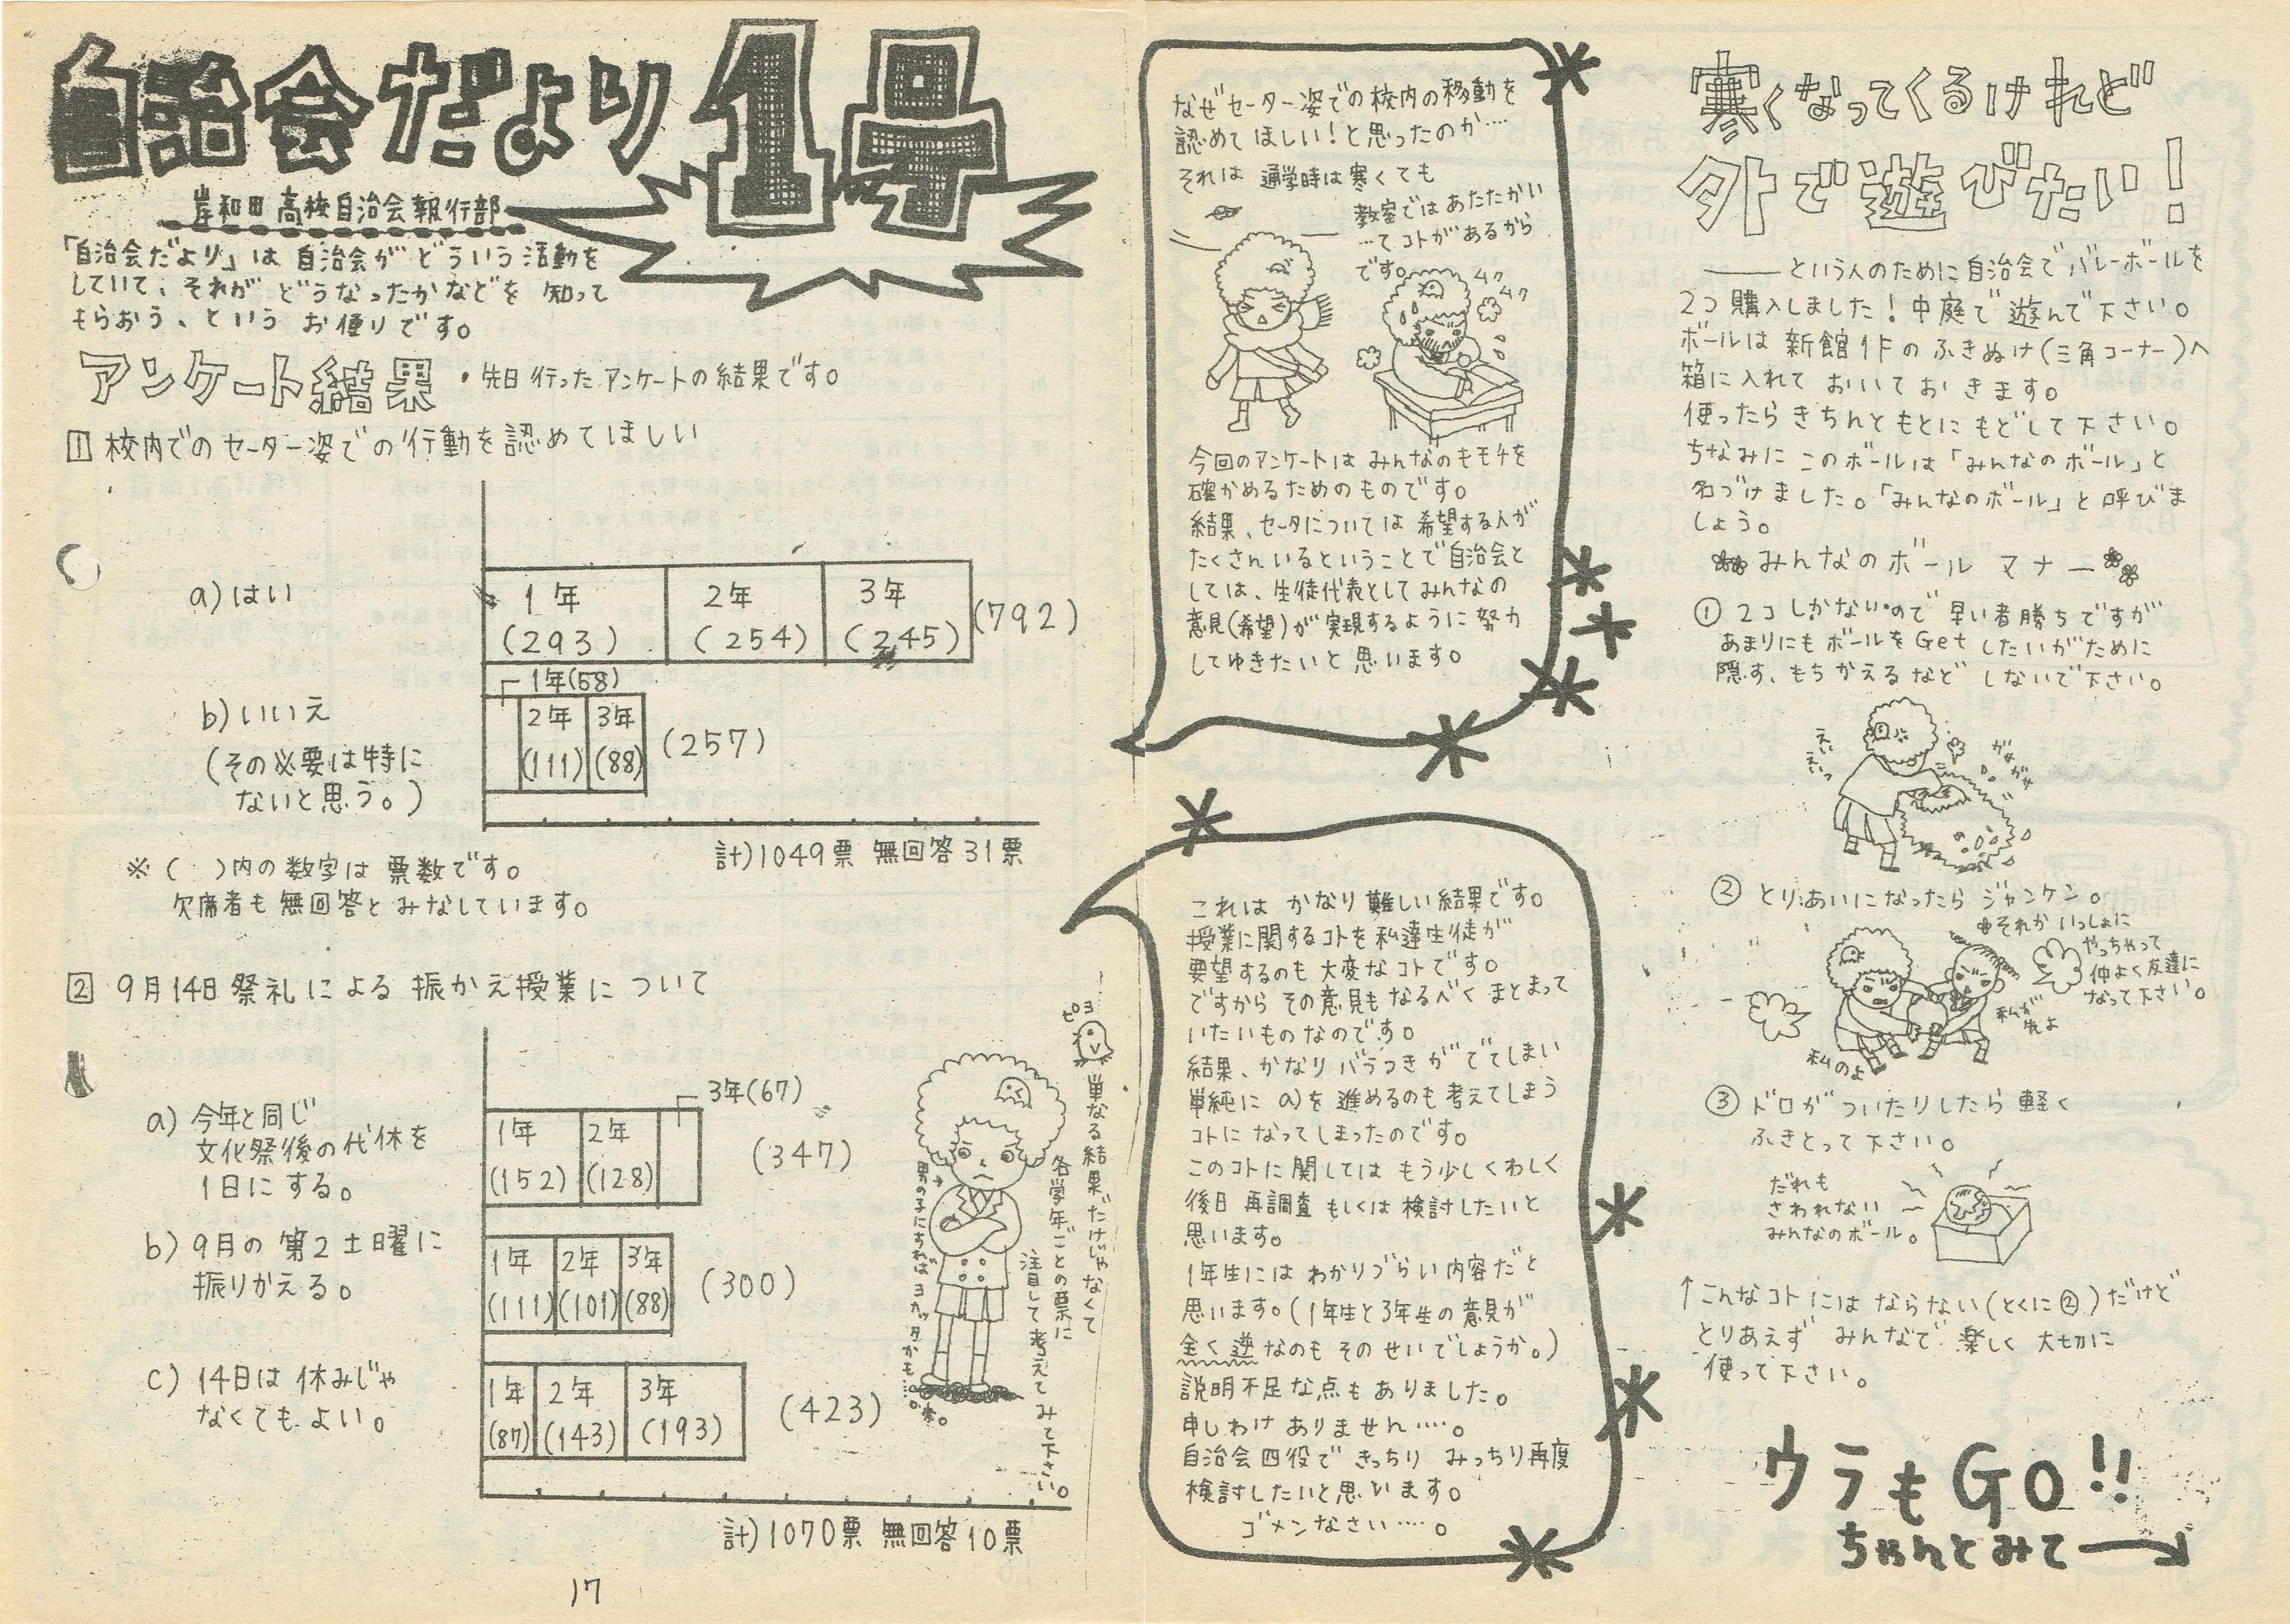 自治会だより1号
岸和田高校自治会報行部
「自治会だより」は自治会がどういう活動を
していて、それがどうなったかなどを知って
もらおう、というお便りです。
アンケート結果 ・先日行ったアンケートの結果です。
1 校内でのセーター姿での行動を認めてほしい
a)はい
1年 2年 3年
(293) (254) (245) (792)
1年(58)
b)いいえ
2年 3年
(111) (88) (257)
(その必要は特に
ないと思う。)
計)1049票 無回答31票
※( )内の数字は票数です。
欠席者も無回答とみなしています。
2 9月14日祭礼による振かえ授業について
a)今年と同じ
文化祭後の代休を
1日にする。
3年(67)
1年 2年
(152) (128) (347)
b)9月の第2土曜に
振りかえる。
1年 2年 3年
(111) (101) (88) (300)
c)14日は休みじゃ
なくてもよい。
1年 2年 3年
(87) (143) (193) (423)
計)1070票 無回答10票
ピヨ
単なる結果だけじゃなくて
各学年ごとの票に
注目して考えてみて下さい。
男の子にもればヨカッタかも…。
17
なぜセーター姿での校内の移動を
認めてほしい!と思ったのか…
それは通学時は寒くても
教室ではあたたかい
…てコトがあるから
です。
ムク
ムク
今回のアンケートはみんなのキモチを
確かめるためのものです。
結果、セータについては希望する人が
たくさんいるということで自治会と
しては、生徒代表としてみんなの
意見(希望)が実現するように努力
してゆきたいと思います。
これはかなり難しい結果です。
授業に関するコトを私達生徒が
要望するのも大変なコトです。
ですからその意見もなるべくまとまって
いたいものなのです。
結果、かなりバラつきがでてしまい
単純にa)を進めるのも考えてしまう
コトになってしまったのです。
このコトに関してはもう少しくわしく
後日再調査もしくは検討したいと
思います。
1年生にはわかりづらい内容だと
思います。(1年生と3年生の意見が
全く逆なのもそのせいでしょうか。)
説明不足な点もありました。
申しわけありません….。
自治会四役できっちりみっちり再度
検討したいと思います。
ゴメンなさい….。
寒くなってくるけれど
外で遊びたい!
――という人のために自治会でバレーボールを
2つ購入しました!中庭で遊んで下さい。
ボールは新館1Fのふきぬけ(三角コーナー)へ
箱に入れておいておきます。
使ったらきちんともとにもどして下さい。
ちなみにこのボールは「みんなのボール」と
名づけました。「みんなのボール」と呼びま
しょう。
みんなのボールマナー
① 2コしかないので早い者勝ちですが
あまりにもボールをGetしたいがために
隠す、もちかえるなどしないで下さい。
えい
えいっ
ガガ
ガガ
② とりあいになったらジャンケン。
それかいっしょに
やっちゃって
仲よく友達に
なって下さい。
私のよ
③ ドロがついたりしたら軽く
ふきとって下さい。
だれも
さわれない
みんなのボール。
↑こんなコトにはならない(とくに②)だけど
とりあえずみんなで楽しく大切に
使って下さい。
ウラもGO!!
ちゃんとみて→